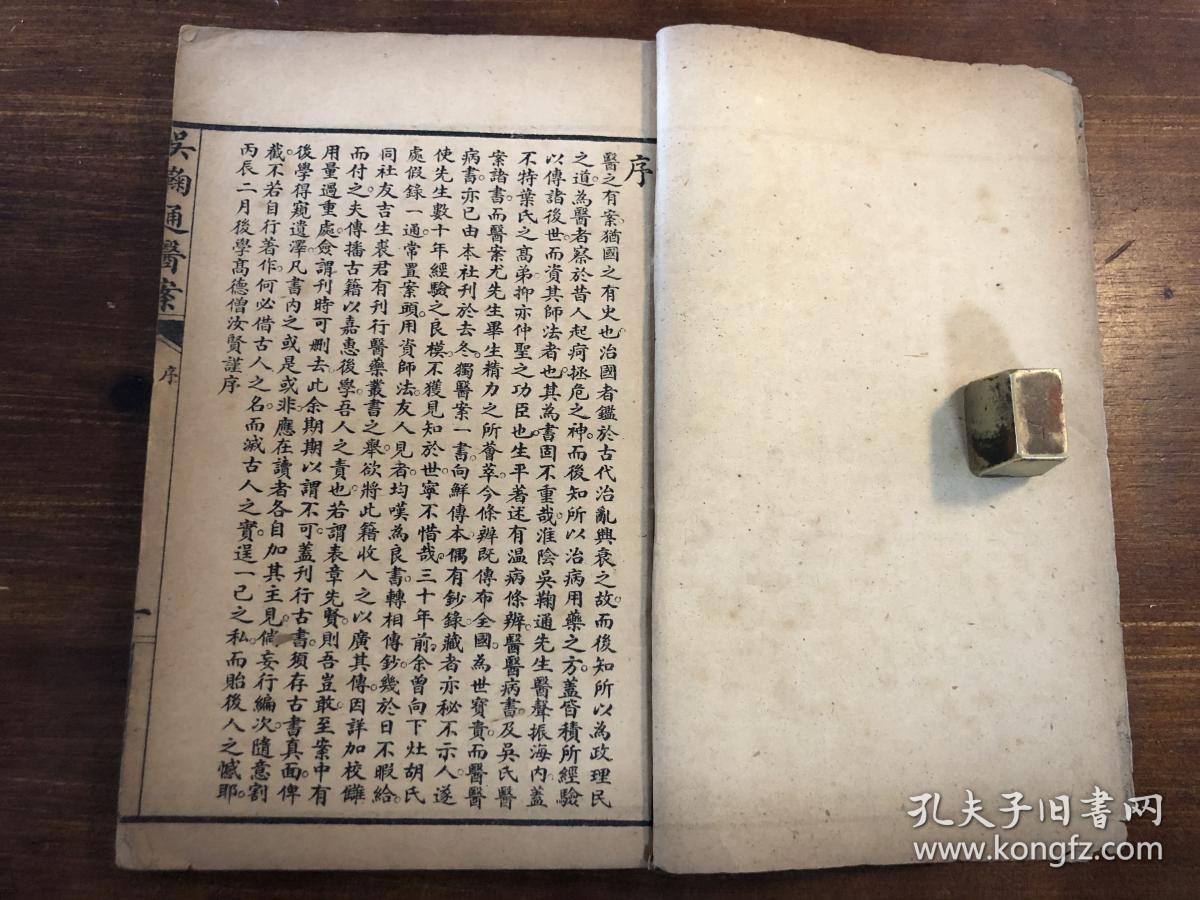 序
醫之有案猶國之有史也治國者鑑於古代治亂興衰之故而後知所以為政理民
之道為醫者察於昔人起疴拯危之神而後知所以治病用藥之方蓋皆積所經驗
以傳諸後世而資其師法者也其為書固不重哉淮陰吳鞠通先生醫聲振海內蓋
不特葉氏之高弟抑亦仲聖之功臣也生平著述有温病條辨醫醫病書及吳氏醫
案諸書而醫案尤先生畢生精力之所薈萃今條辨既傳布全國為世寶貴而醫醫
病書亦已由本社刊於去冬獨醫案一書向鮮傳本偶有鈔錄藏者亦秘不示人遂
使先生數十年經驗之良模不獲見知於世寧不惜哉三十年前余曾向下灶胡氏
處假錄一通常置案頭用資師法友人見者均嘆為良書轉相傳鈔幾於日不暇給
同社友吉生裘君有刊行醫藥叢書之舉欲將此籍收入之以廣其傳因詳加校讎
而付之夫傳播古籍以嘉惠後學吾人之責也若謂表章先賢則吾豈敢至案中有
用量過重處僉謂刊時可刪去此余期期以謂不可蓋刊行古書須存古書真面俾
後學得窺遺澤凡書內之或是或非應在讀者各自加其主見倘妄行編次隨意割
截不若自行著作何必借古人之名而滅古人之實逞一己之私而貽後人之憾耶
丙辰二月後學高德僧汝賢謹序
吳鞠通醫案
序
一
孔夫子旧书网
www.kongfz.com